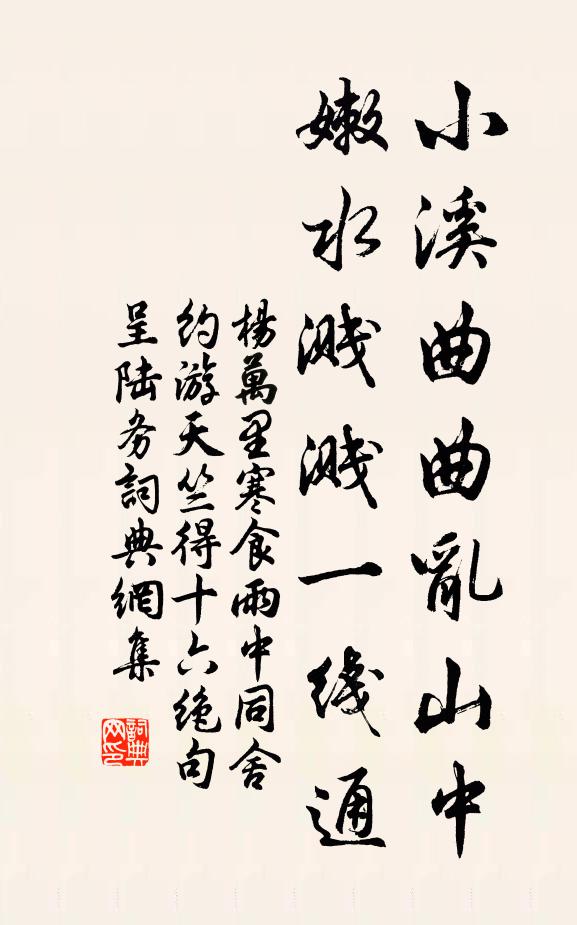 小溪曲曲亂山中
嫩水濺濺一线通
楊萬里寒食雨中同舍
约游天竺得十六绝句
呈陆务詞典網集
詞典网印